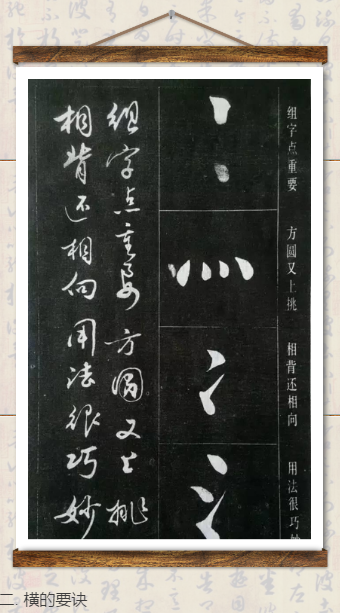 组字点重要 方圆又上挑 相背还相向 用法很巧妙
组字点重要 方圆又上挑
相背还相向 用法很巧妙
二. 横的要诀